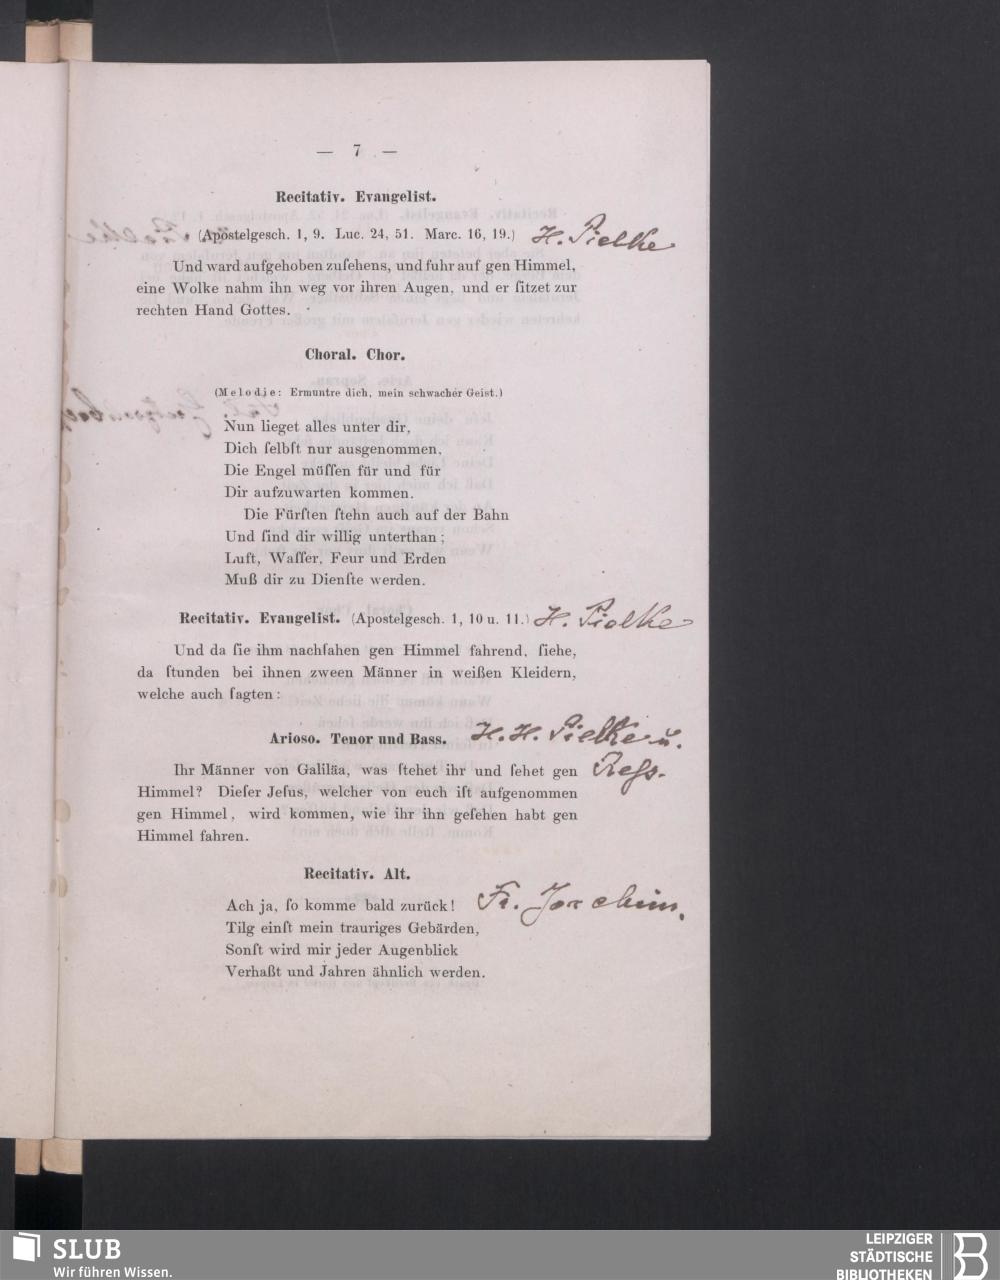 — 7 —
Recitativ. Evangelist.
(Apostelgesch. 1, 9. Luc. 24, 51. Marc. 16, 19.) H. Pielke
Und ward aufgehoben zuſehens, und fuhr auf gen Himmel,
eine Wolke nahm ihn weg vor ihren Augen, und er ſitzet zur
rechten Hand Gottes.
Choral. Chor.
(Melodie: Ermuntre dich, mein schwacher Geist.)
Nun lieget alles unter dir,
Dich ſelbſt nur ausgenommen,
Die Engel müſſen für und für
Dir aufzuwarten kommen.
Die Fürſten ſtehn auch auf der Bahn
Und ſind dir willig unterthan;
Luft, Waſſer, Feur und Erden
Muß dir zu Dienſte werden.
Recitativ. Evangelist. (Apostelgesch. 1, 10 u. 11.) H. Pielke
Und da ſie ihm nachſahen gen Himmel fahrend, ſiehe,
da ſtunden bei ihnen zween Männer in weißen Kleidern,
welche auch ſagten:
Arioso. Tenor und Bass. H. H. Pielke u.
Ress.
Ihr Männer von Galiläa, was ſtehet ihr und ſehet gen
Himmel? Dieſer Jeſus, welcher von euch iſt aufgenommen
gen Himmel, wird kommen, wie ihr ihn geſehen habt gen
Himmel fahren.
Recitativ. Alt.
Ach ja, ſo komme bald zurück! Fr. Joachim.
Tilg einſt mein trauriges Gebärden,
Sonſt wird mir jeder Augenblick
Verhaßt und Jahren ähnlich werden.
SLUB
Wir führen Wissen.
LEIPZIGER
STÄDTISCHE
BIBLIOTHEKEN